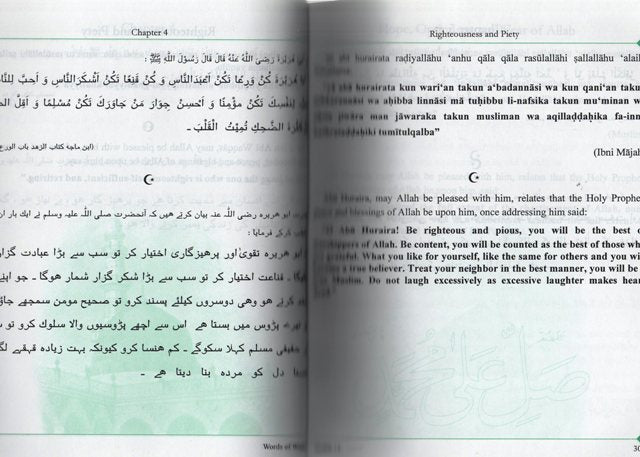 Chapter 4
هُرَيْرَةَ رَضِيَ اللّٰهُ عَنْهُ قَالَ قَالَ رَسُوْلُ اللّٰهِ ﷺ :
كُنْ وَرِعًا تَكُنْ اَعْبَدَالنَّاسِ وَ كُنْ قَنِعًا تَكُنْ اَشْكَرَالنَّاسِ وَ اَحِبَّ لِلنَّاسِ
لِنَفْسِكَ تَكُنْ مُؤْمِنًا وَ اَحْسِنْ جِوَارَ مَنْ جَاوَرَكَ تَكُنْ مُسْلِمًا وَ اَقِلَّ
كَثْرَةَ الضَّحِكِ تُمِيْتُ الْقَلْبَ ـ
(ابن ماجه كتاب الزهد باب الورع
ابو هریره رضی اللّٰه عنہ بیان کرتے ہیں کہ آنحضرت صلی اللّٰہ علیہ وسلم نے ایک بار ان
کرکے فرمایا :
ابو ہریرہ تقویٰ اور پرھیزگاری اختیار کر تو سب سے بڑا عبادت گزار
گا ـ قناعت اختیار کر تو سب سے بڑا شکر گزار شمار ہوگا ـ جو اپنے
کرتے ہو وہی دوسروں کیلئے پسند کرو تو صحیح مومن سمجھے جاؤ
تیرے پڑوس میں بستا ہے اس سے اچھے پڑوسیوں والا سلوک کرو تو
حقیقی مسلم کہلا سکوگے ـ کم ھنسا کرو کیونکہ بہت زیادہ قہقہے
دل کو مردہ بنا دیتا ہے ـ
Words of
Righteousness and Piety
abī hurairata raḍiyallāhu ‘anhu qāla qāla rasūlallāhi ṣallallāhu ‘alaihi
hurairata kun wari‘an takun a‘badannāsi wa kun qani‘an takun
wa aḥibba linnāsi mā tuḥibbu li-nafsika takun mu’minan
jiwāra man jāwaraka takun musliman wa aqilladḍaḥika fa-inna
tumītulqalba”
(Ibni Mājah
Huraira, may Allah be pleased with him, relates that the Holy Prophet,
and blessings of Allah be upon him, once addressing him said:
Abū Huraira! Be righteous and pious, you will be the best of
of Allah. Be content, you will be counted as the best of those who
grateful. What you like for yourself, like the same for others and you will
a true believer. Treat your neighbor in the best manner, you will be
Muslim. Do not laugh excessively as excessive laughter makes heart
صل على محمد
30